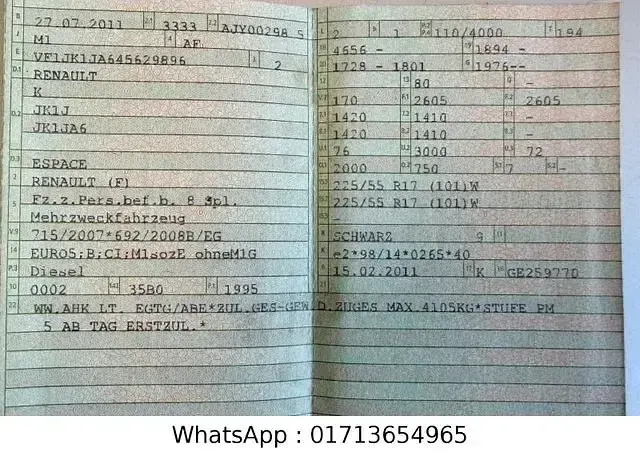 B 27.07.2011 2.1 3333 2.2 AJY00298 5
J M1 4 AF
E VF1JK1JA645629896 3 2
D.1 RENAULT
K
D.2 JK1J
JK1JA6
D.3 ESPACE
2 RENAULT (F)
5 Fz.z.Pers.bef.b. 8 Spl.
Mehrzweckfahrzeug
V.9 715/2007*692/2008B/EG
14 EURO5;B;CI;M1sozE ohneM1G
P.3 Diesel
10 0002 14.1 35B0 P.1 1995
22 WW.AHK LT. EGTG/ABE*ZUL.GES-GEW.D.ZUGES MAX.4105KG*STUFE PM
5 AB TAG ERSTZUL.*
L 2 9 1 P.2 P.4 110/4000 T 194
18 4656 - 19 1894 -
20 1728 - 1801 G 1976--
12 - 13 80 Q -
V.7 170 F.1 2605 F.2 2605
7.1 1420 8.1 1410 -
1420 1410 -
U.1 76 U.2 3000 U.3 72
O.1 2000 O.2 750 S.1 7 S.2 -
15.1 225/55 R17 (101)W
15.2 225/55 R17 (101)W
15.3 -
R SCHWARZ 9 11
K e2*98/14*0265*40
6 15.02.2011 17 K 16 GE259770
21
WhatsApp : 01713654965